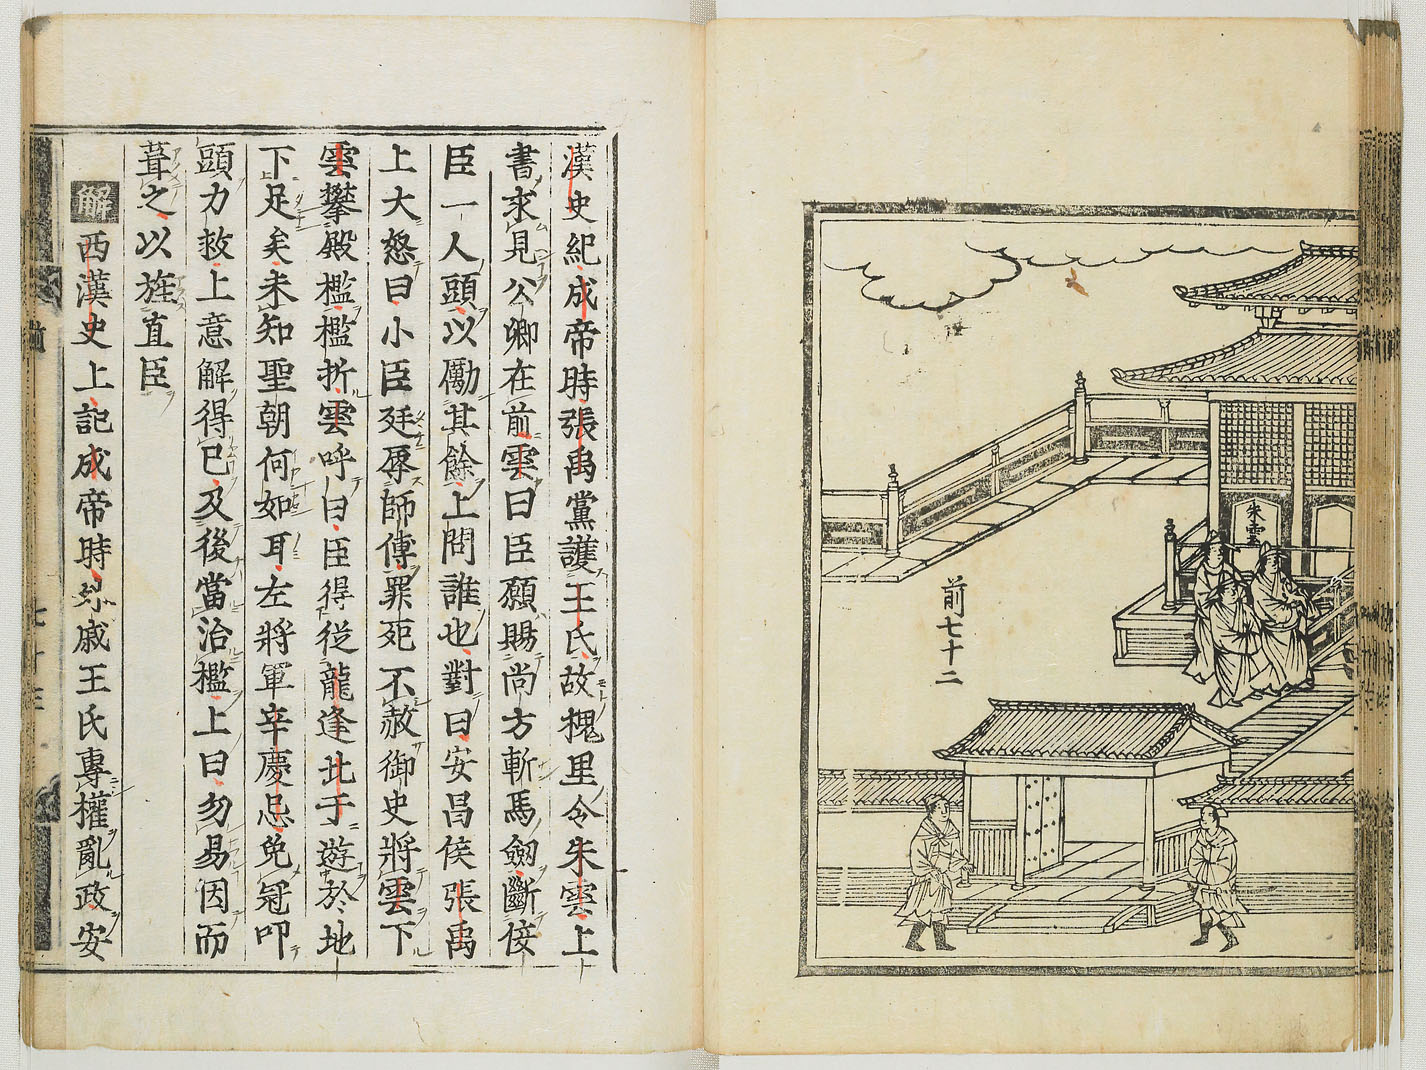 朱雲
前七十二
漢史紀成帝時張禹黨護王氏故槐里令朱雲上
書求見公卿在前雲曰臣願賜尚方斬馬劒斷侫
臣一人頭以勵其餘上問誰也對曰安昌侯張禹
上大怒曰小臣廷辱師傅罪死不赦御史將雲下
雲攀殿檻檻折雲呼曰臣得從龍逢比干遊於地
下足矣未知聖朝何如耳左將軍辛慶忌免冠叩
頭力救上意解得已及後當治檻上曰勿易因而
葺之以旌直臣
解西漢史上記成帝時外戚王氏專權亂政安